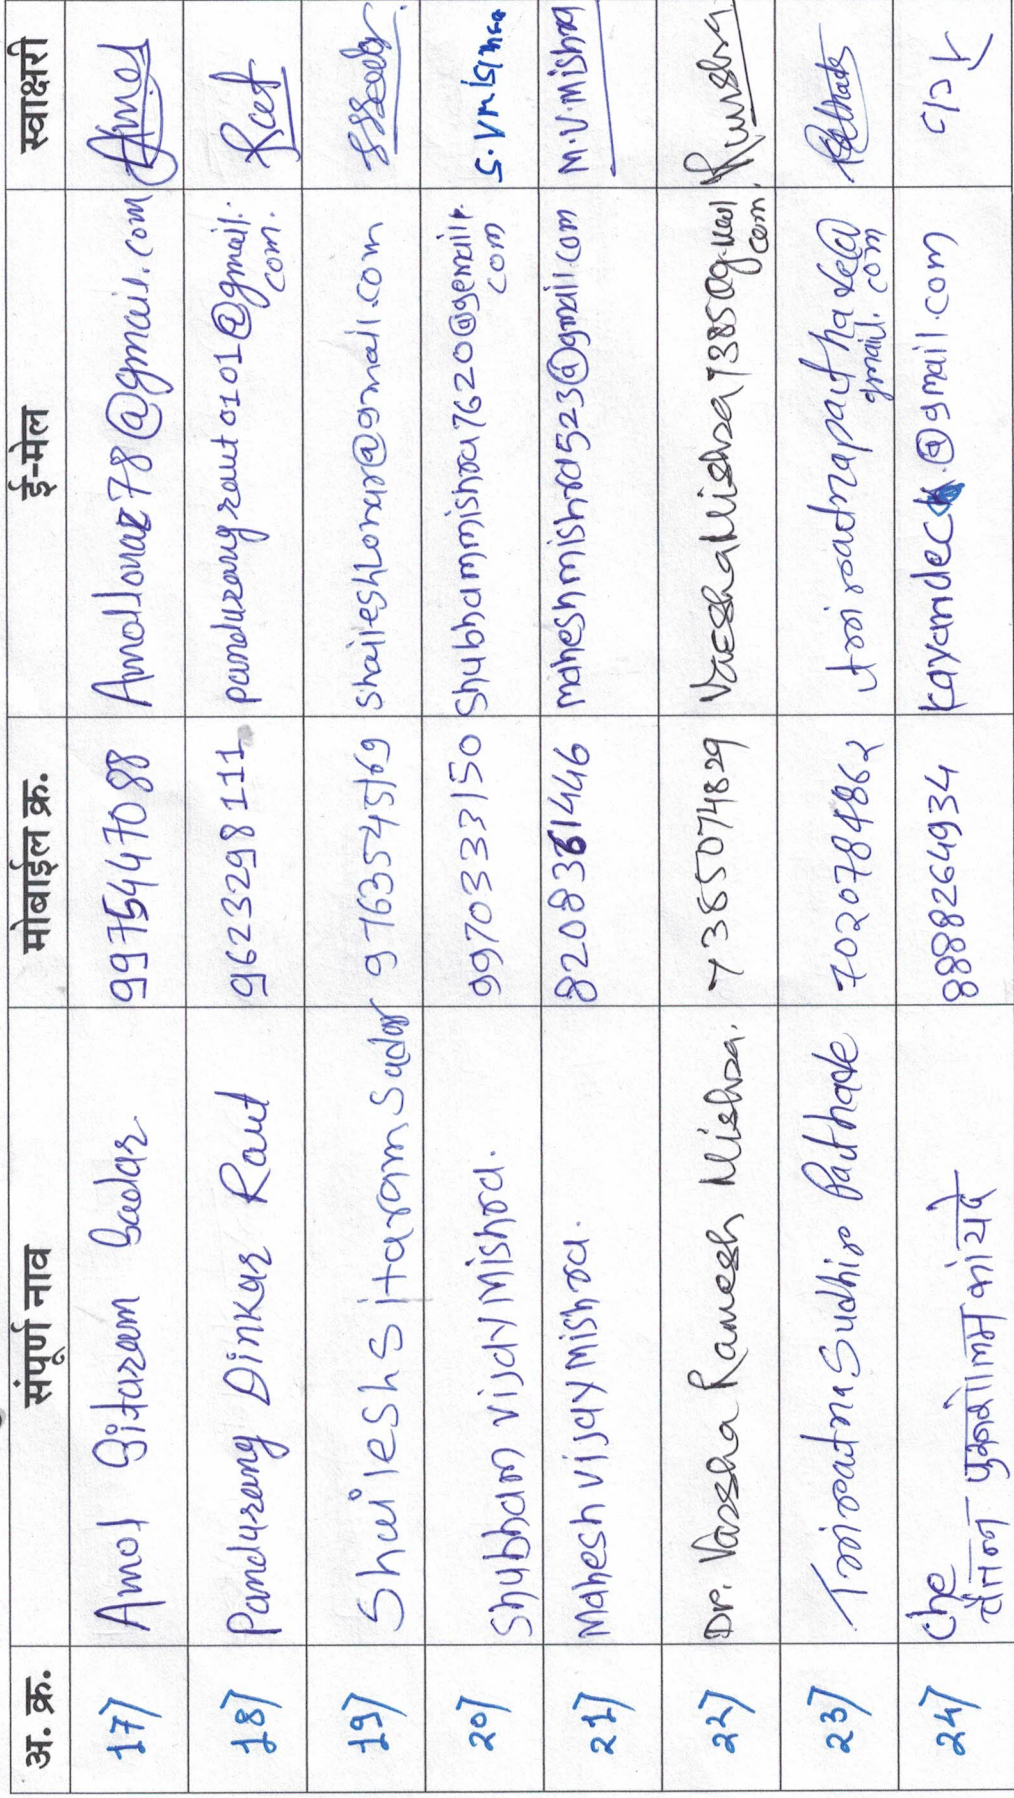 अ. क्र. संपूर्ण नाव मोबाईल क्र. ई-मेल स्वाक्षरी
17) Amol Sitaram Sadar 9975447088 Amollonar78@gmail.com
18) Pandurang Dinkar Raut 9623298111 pandurangraut0101@gmail.
com.
19) Shailesh Sitaram Sadar 9763545169 shaileshlonar@gmail.com
20) Shubham vijay Mishra. 9970333150 Shubhammishra7620@gemail.
com S.V.Mishra
21) Mahesh vijay Mishra. 8208361446 maheshmishra1523@gmail.com M.V.Mishra
22) Dr. Varsha Ramesh Mishra. 7385074829
com.
23) Sudhir Paithade 7020784862
gmail.com
24) Che 8888264934 kayandeck.@gmail.com
चेतन पुरुषोत्तम कायंदे